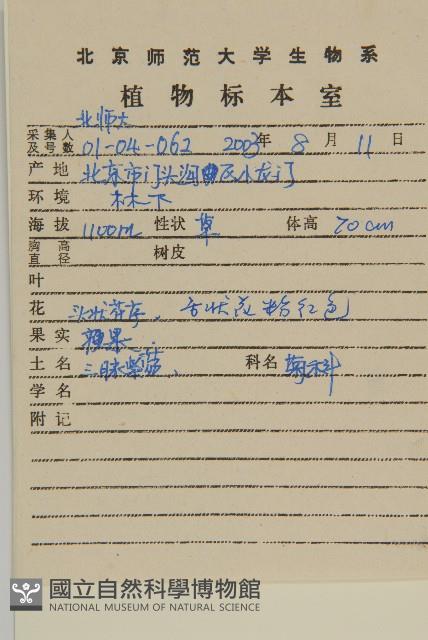 北京师范大学生物系
植物标本室
北师大
采集人及号数 01-04-062 2003年8月11日
产地 北京市门头沟区小龙门
环境 林下
海拔 1100m 性状 草 体高 70cm
胸高直径 树皮
叶
花 头状花序、舌状花粉红色
果实 瘦果
土名 三脉紫菀、 科名 菊科
学名
附记
國立自然科學博物館
NATIONAL MUSEUM OF NATURAL SCIENCE